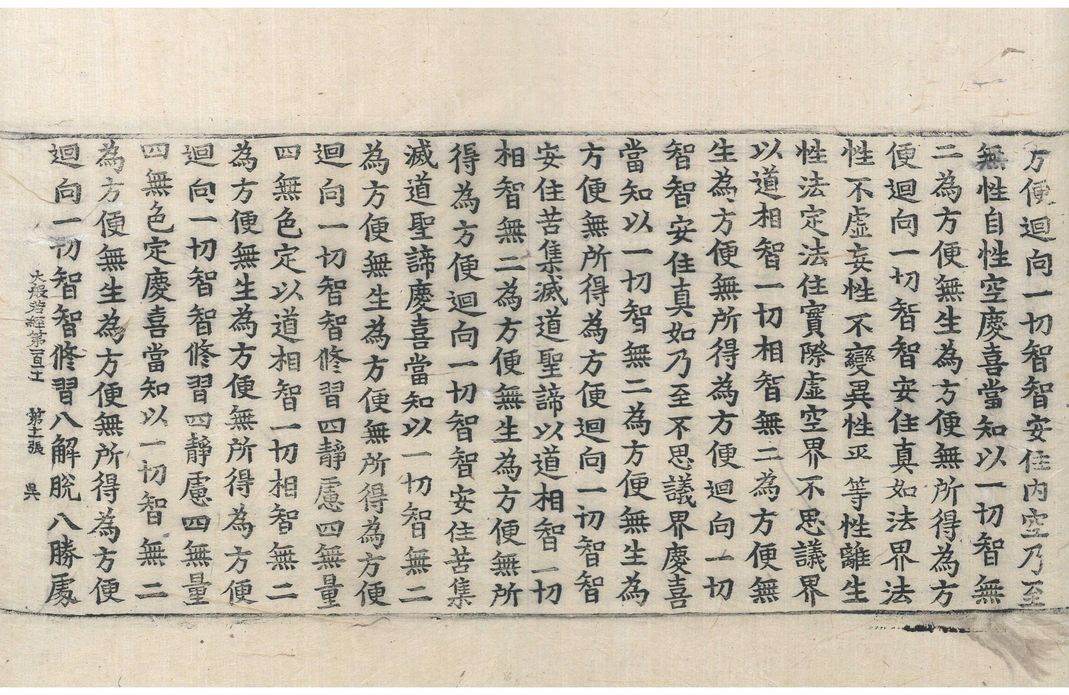 方便迴向一切智智安住內空乃至
無性自性空慶喜當知以一切智無
二為方便無生為方便無所得為方
便迴向一切智智安住真如法界法
性不虛妄性不變異性平等性離生
性法定法住實際虛空界不思議界
以道相智一切相智無二為方便無
生為方便無所得為方便迴向一切
智智安住真如乃至不思議界慶喜
當知以一切智無二為方便無生為
方便無所得為方便迴向一切智智
安住苦集滅道聖諦以道相智一切
相智無二為方便無生為方便無所
得為方便迴向一切智智安住苦集
滅道聖諦慶喜當知以一切智無二
為方便無生為方便無所得為方便
迴向一切智智修習四靜慮四無量
四無色定以道相智一切相智無二
為方便無生為方便無所得為方便
迴向一切智智修習四靜慮四無量
四無色定慶喜當知以一切智無二
為方便無生為方便無所得為方便
迴向一切智智修習八解脫八勝處
大般若經第 張 吳